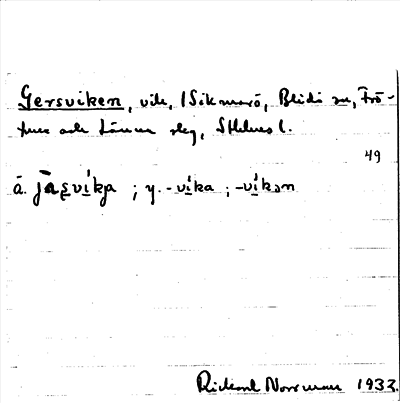 Gersviken, vik, i Sikmarö, Blidö sn, Frö-
tuna och Länna slg, Sthlms l.
49
ä. jäsvikja ; y. -vika ; -vikən
Rickard Norrman 1932.